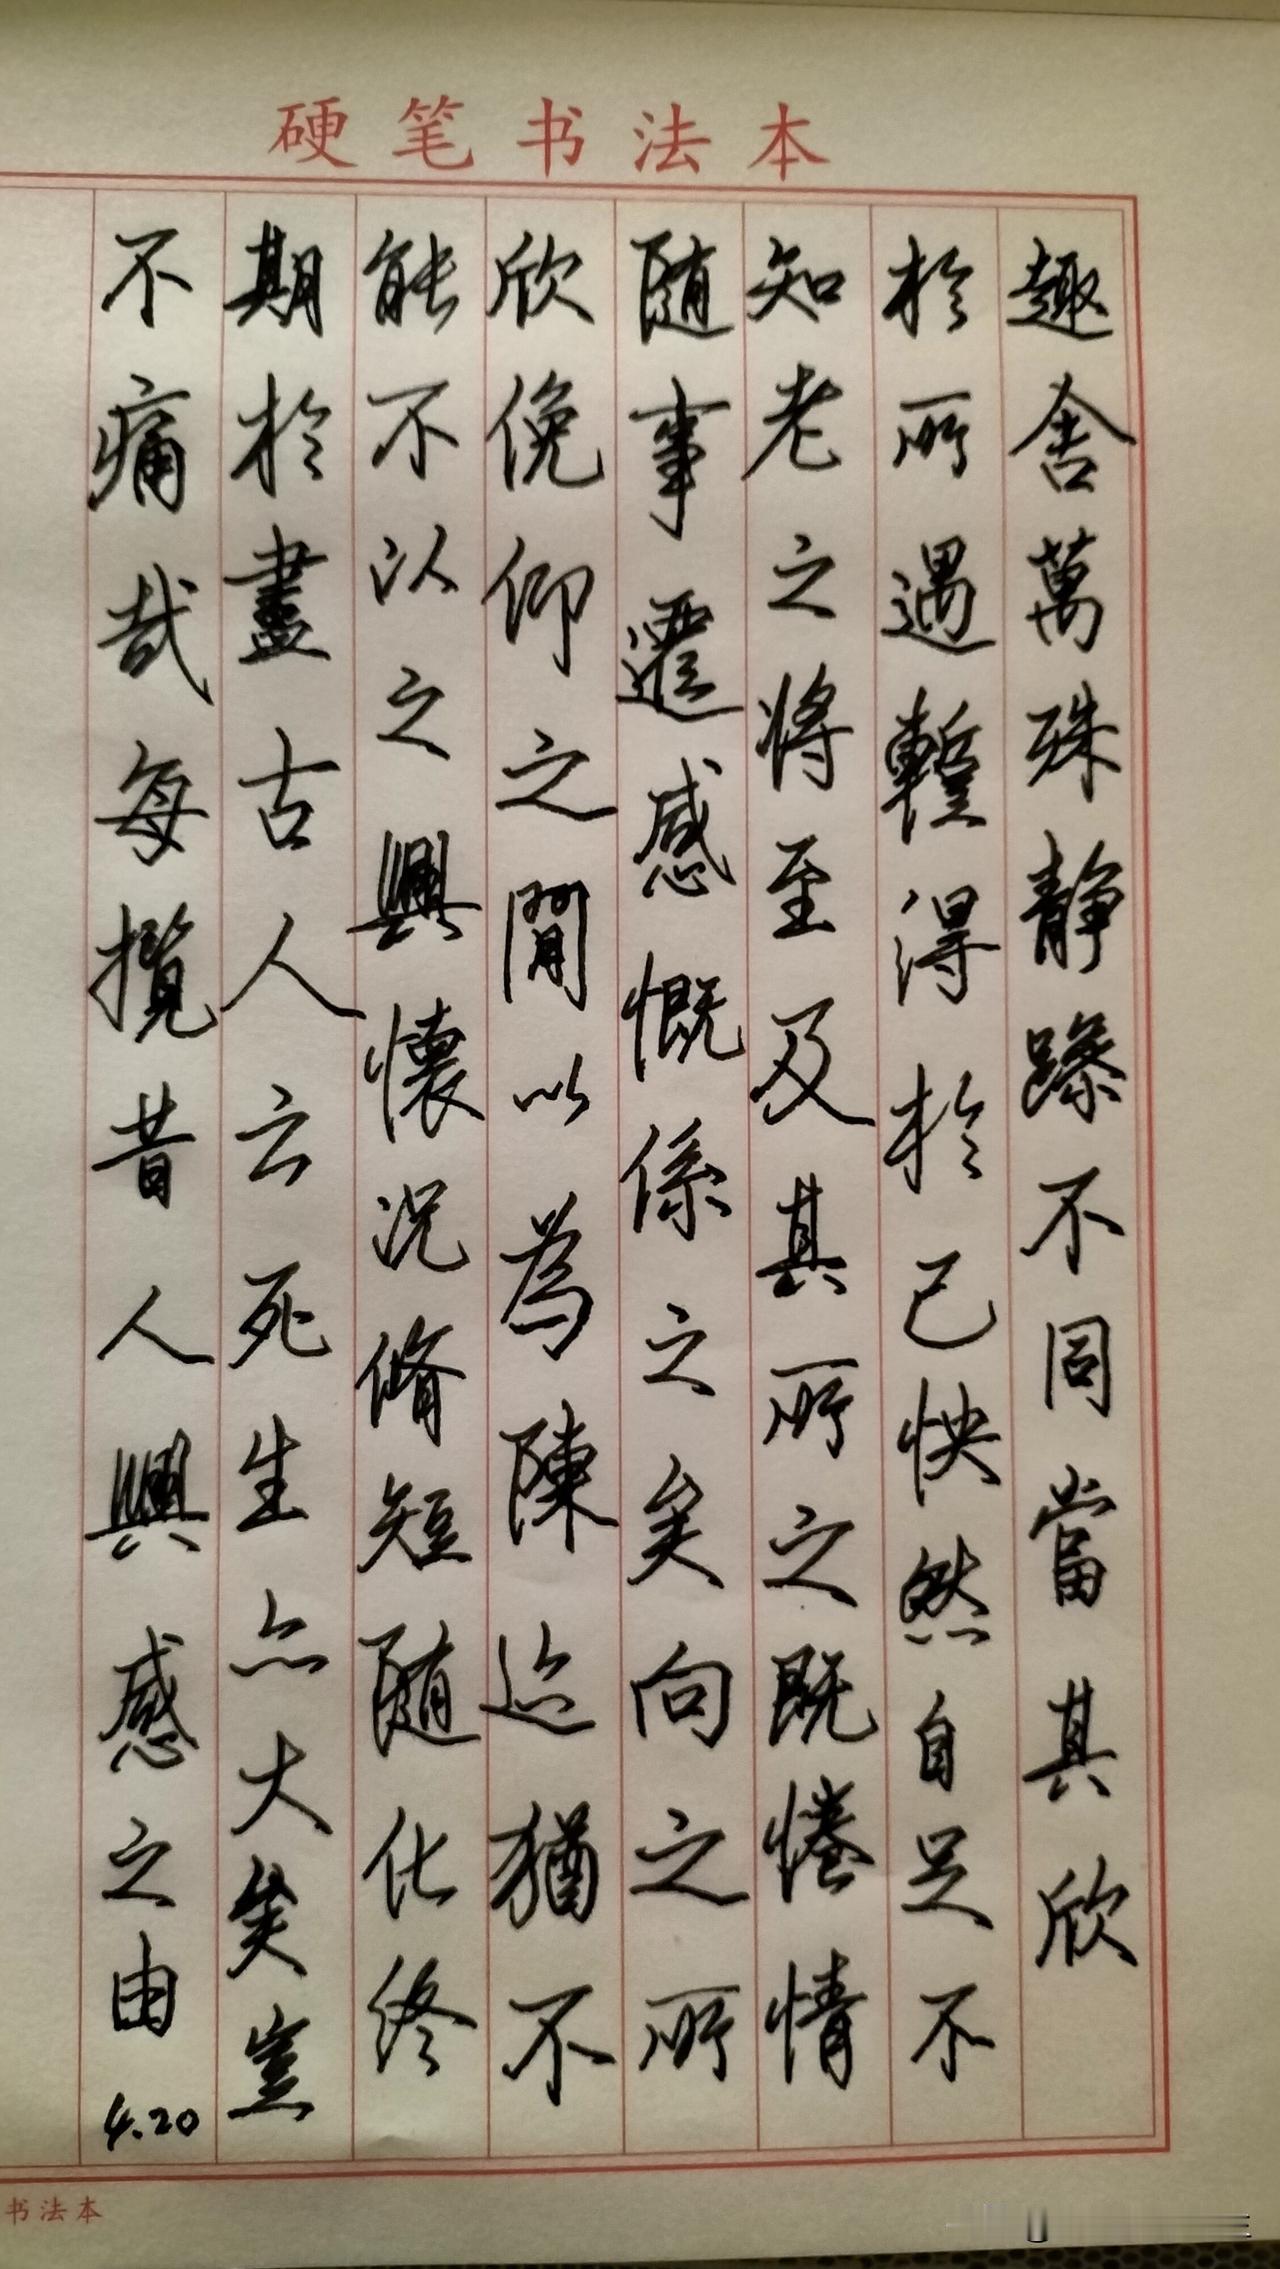 硬笔书法本
趣舍萬殊静躁不同當其欣
於所遇暫得於己快然自足不
知老之将至及其所之既惓情
随事遷感慨係之矣向之所
欣俛仰之閒以為陳迹猶不
能不以之興懷况脩短随化終
期於盡古人云死生亦大矣豈
不痛哉每攬昔人興感之由
4.20
书法本